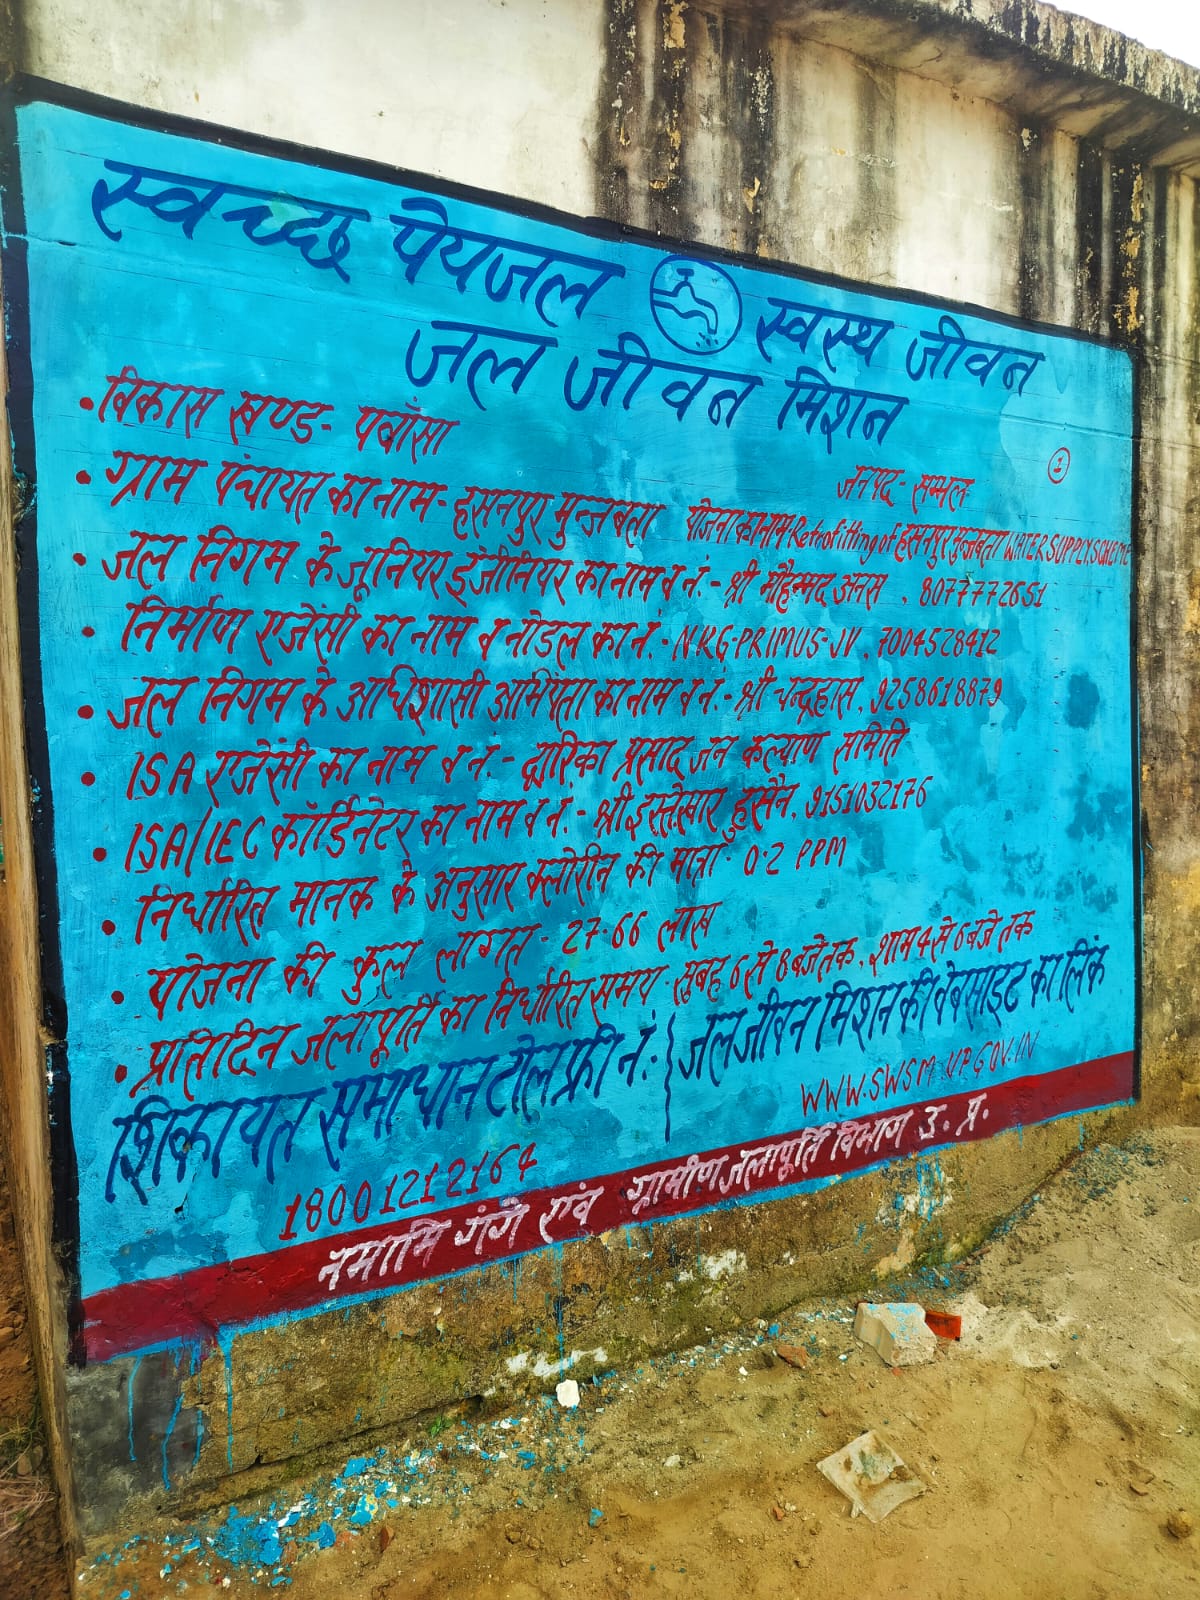 स्वच्छ पेयजल स्वस्थ जीवन
जल जीवन मिशन
1
•विकास खण्ड- पवाँसा जनपद- सम्भल
•ग्राम पंचायत का नाम- हसनपुर मुन्जबता योजना का नाम- Retrofitting of हसनपुर मुन्जबता WATER SUPPLY SCHEME
•जल निगम के जूनियर इंजीनियर का नाम व नं.- श्री मौहम्मद अनस , 8077772651
•निर्माण एजेंसी का नाम व नोडल का नं.- NRG-PRIMUS-JV , 7004528412
•जल निगम के अधिशासी अभियंता का नाम व नं.- श्री चन्द्रहास, 9258618879
•ISA एजेंसी का नाम व नं.- द्वारिका प्रसाद जन कल्याण समिति
•ISA/IEC कॉर्डिनेटर का नाम व नं.- श्री इस्तेखार हुसैन, 9151032176
•निर्धारित मानक के अनुसार क्लोरीन की मात्रा- 0.2 PPM
•योजना की कुल लागत- 27.66 लाख
•प्रतिदिन जलापूर्ति का निर्धारित समय- सुबह 6 से 8 बजे तक, शाम 4 से 6 बजे तक
शिकायत समाधान टोल फ्री नं.
18001212164
जल जीवन मिशन की वेबसाइट का लिंक
WWW.SWSM.UP.GOV.IN
नमामि गंगे एवं ग्रामीण जलापूर्ति विभाग उ. प्र.